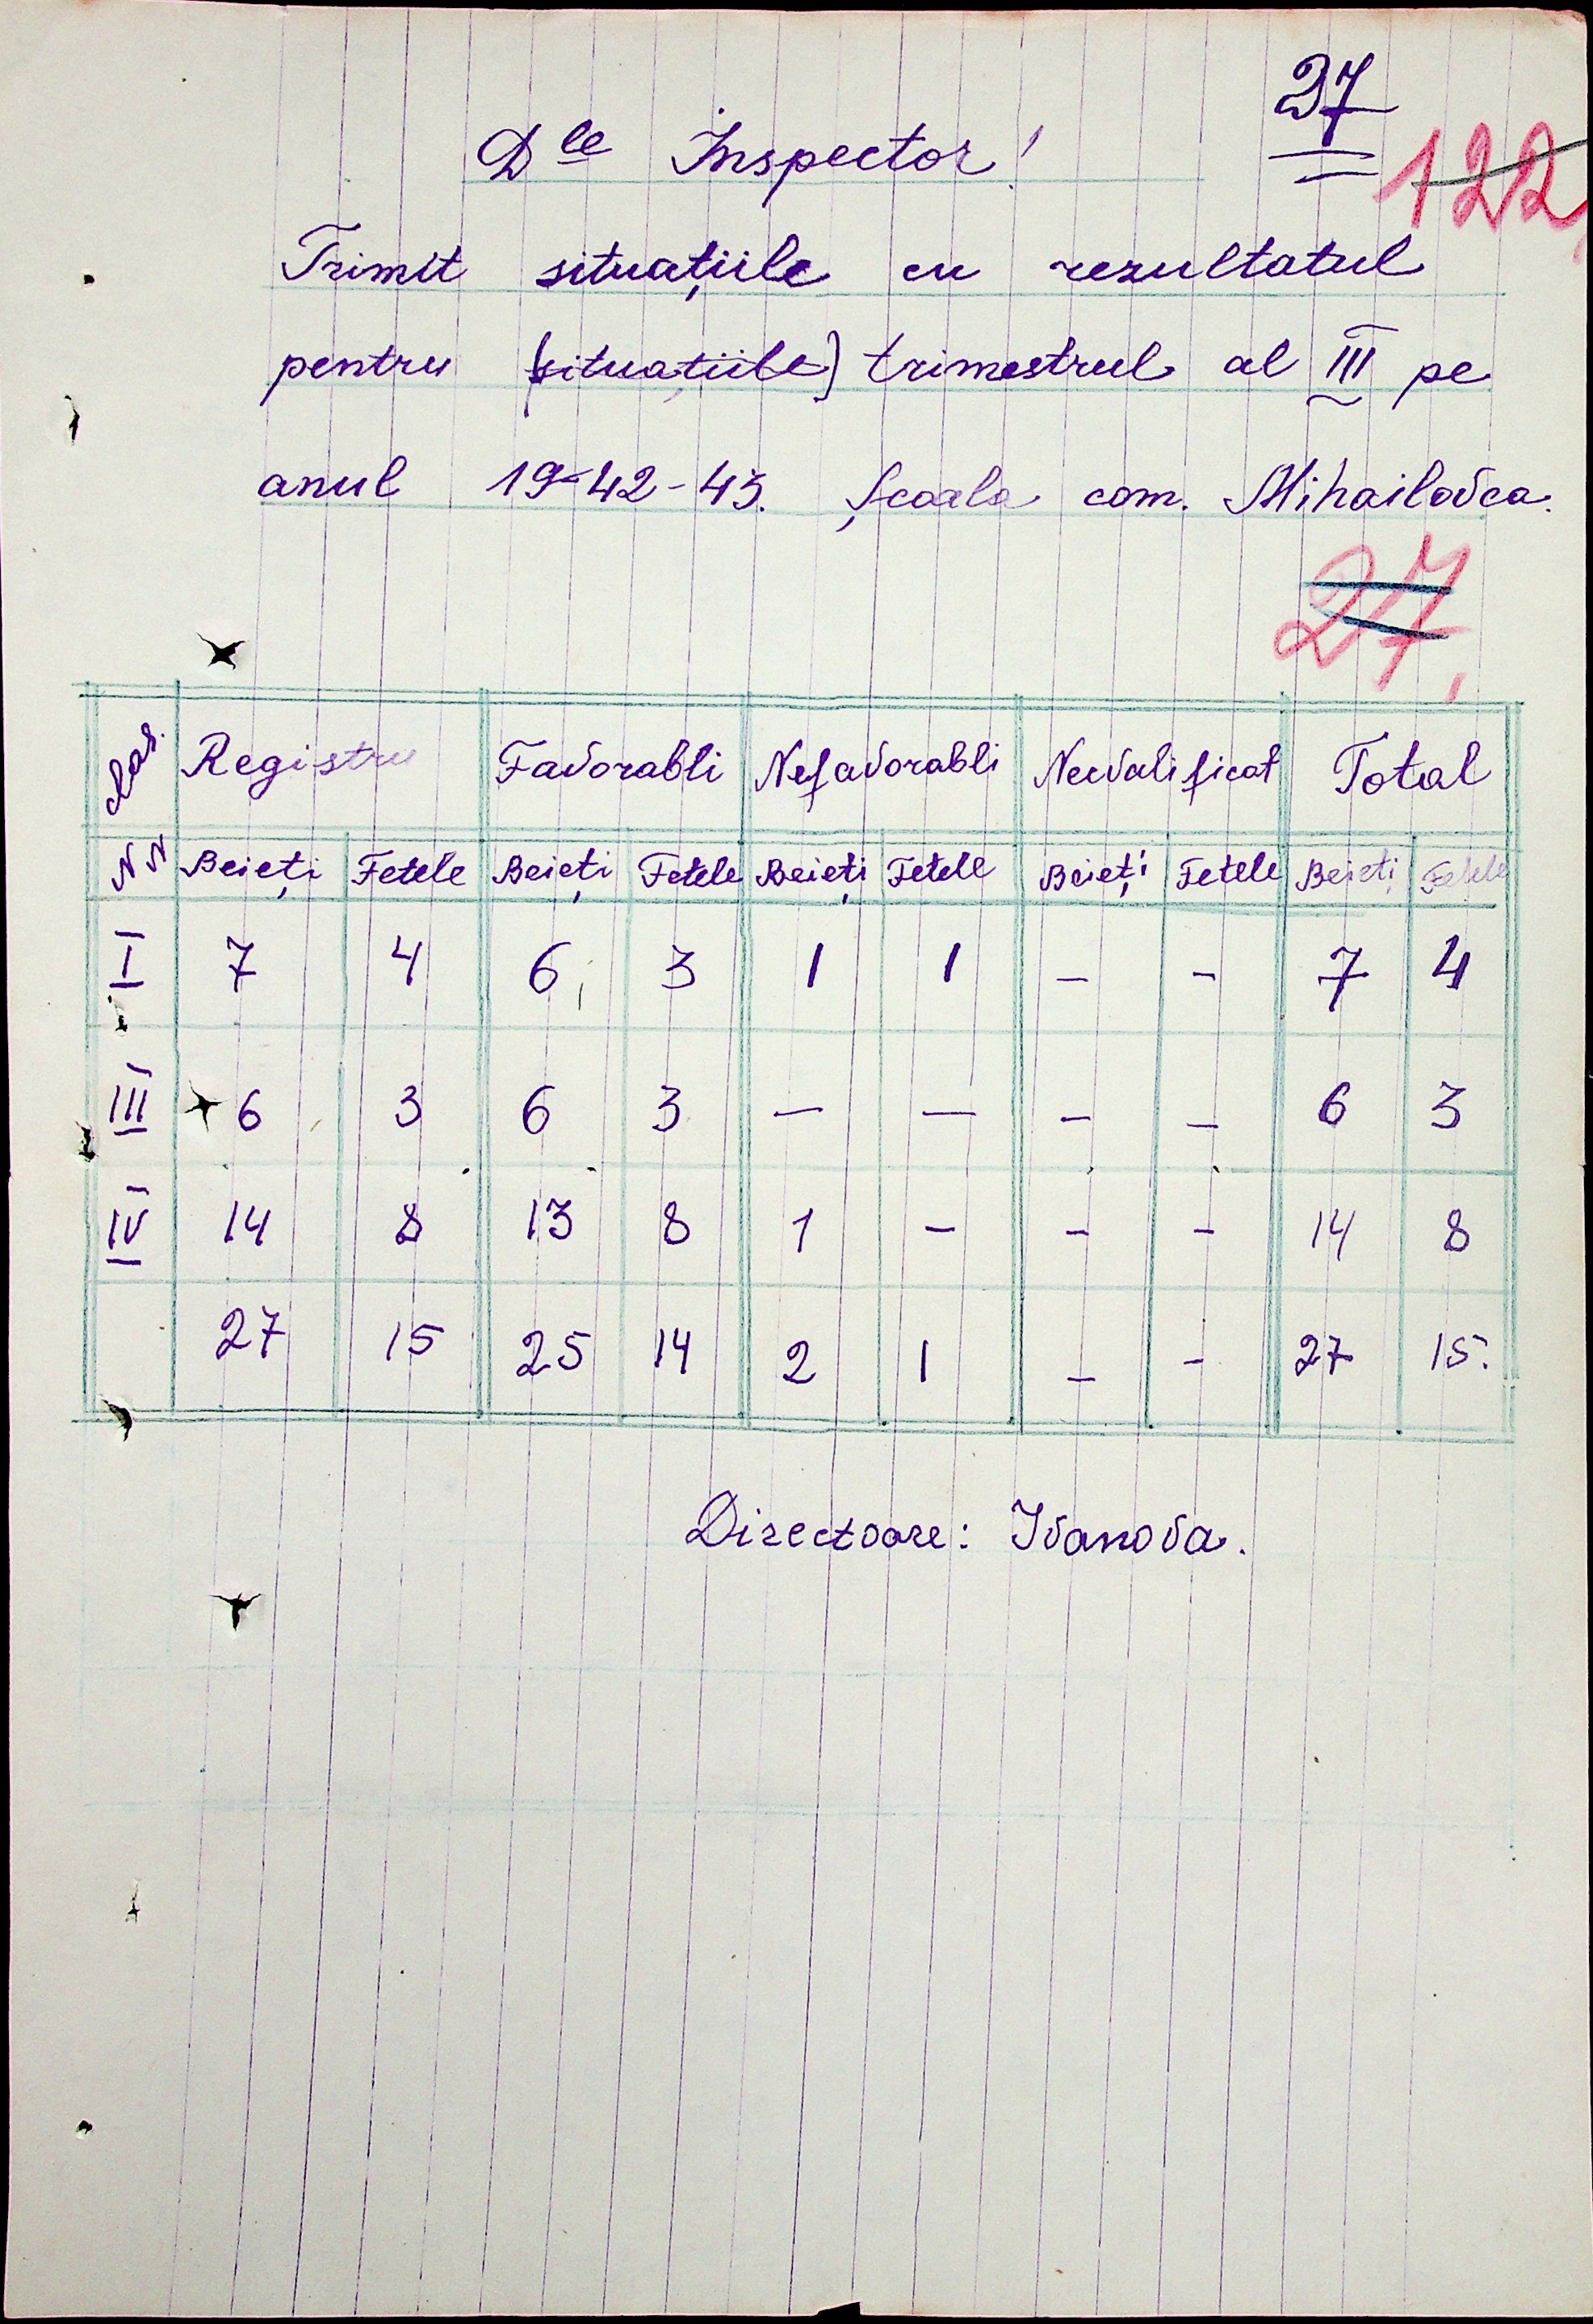 27
122
Dle Inspector!
Trimit situațiile cu rezultatul
pentru (situațiile) trimestrul al III pe
anul 19-42-43. Școala com. Mihailovca.
27,
Clas. Registru Favorabli Nefavorabli Necvalificat Total
NN Beieți Fetele Beieți Fetele Beieți Fetele Beieți Fetele Beieți Fetele
I 7 4 6 3 1 1 – – 7 4
III 6 3 6 3 — — – – 6 3
IV 14 8 13 8 1 – – – 14 8
27 15 25 14 2 1 – – 27 15.
Directoare: Ivanova.